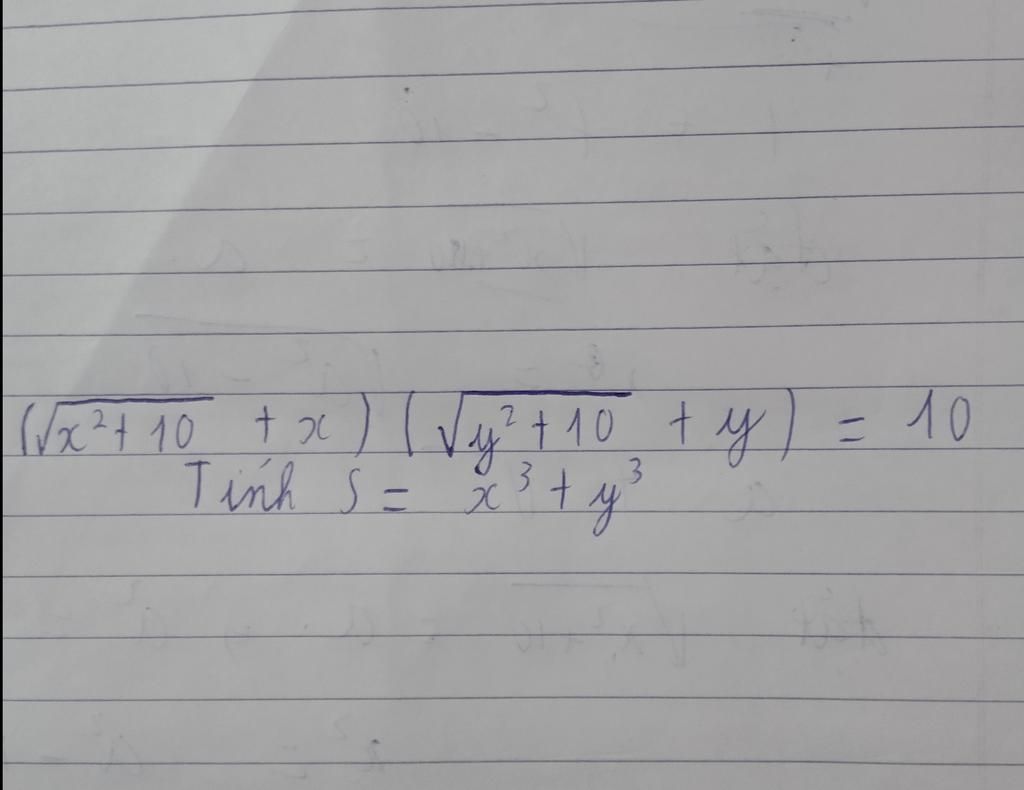 (√x²+10 + x) (√y²+10 + y) = 10
Tính S = x³ + y³